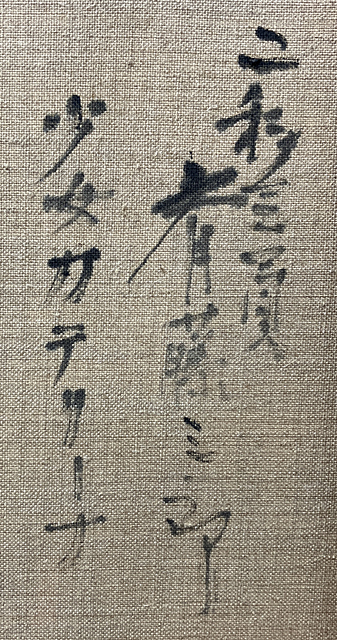 二科会員
斉藤三郎
少女カテリーナ